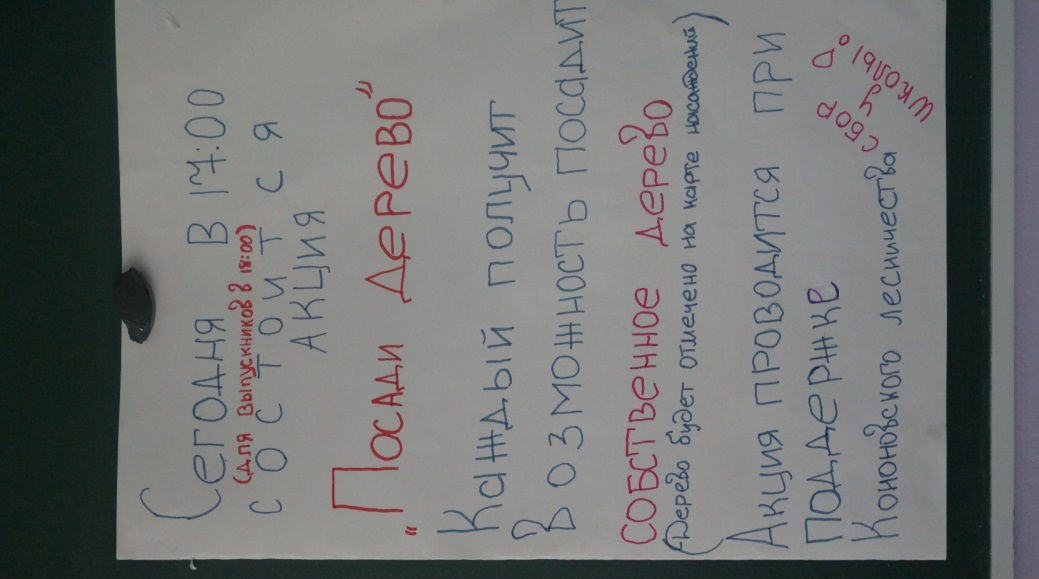 Сегодня в 17:00
(для выпускников в 18:00)
состоится
акция
"Посади дерево"
Каждый получит
возможность посадить
собственное дерево
(Дерево будет отмечено на карте насаждений)
Акция проводится при
поддержке
Кононовского лесничества
сбор
у
школы.